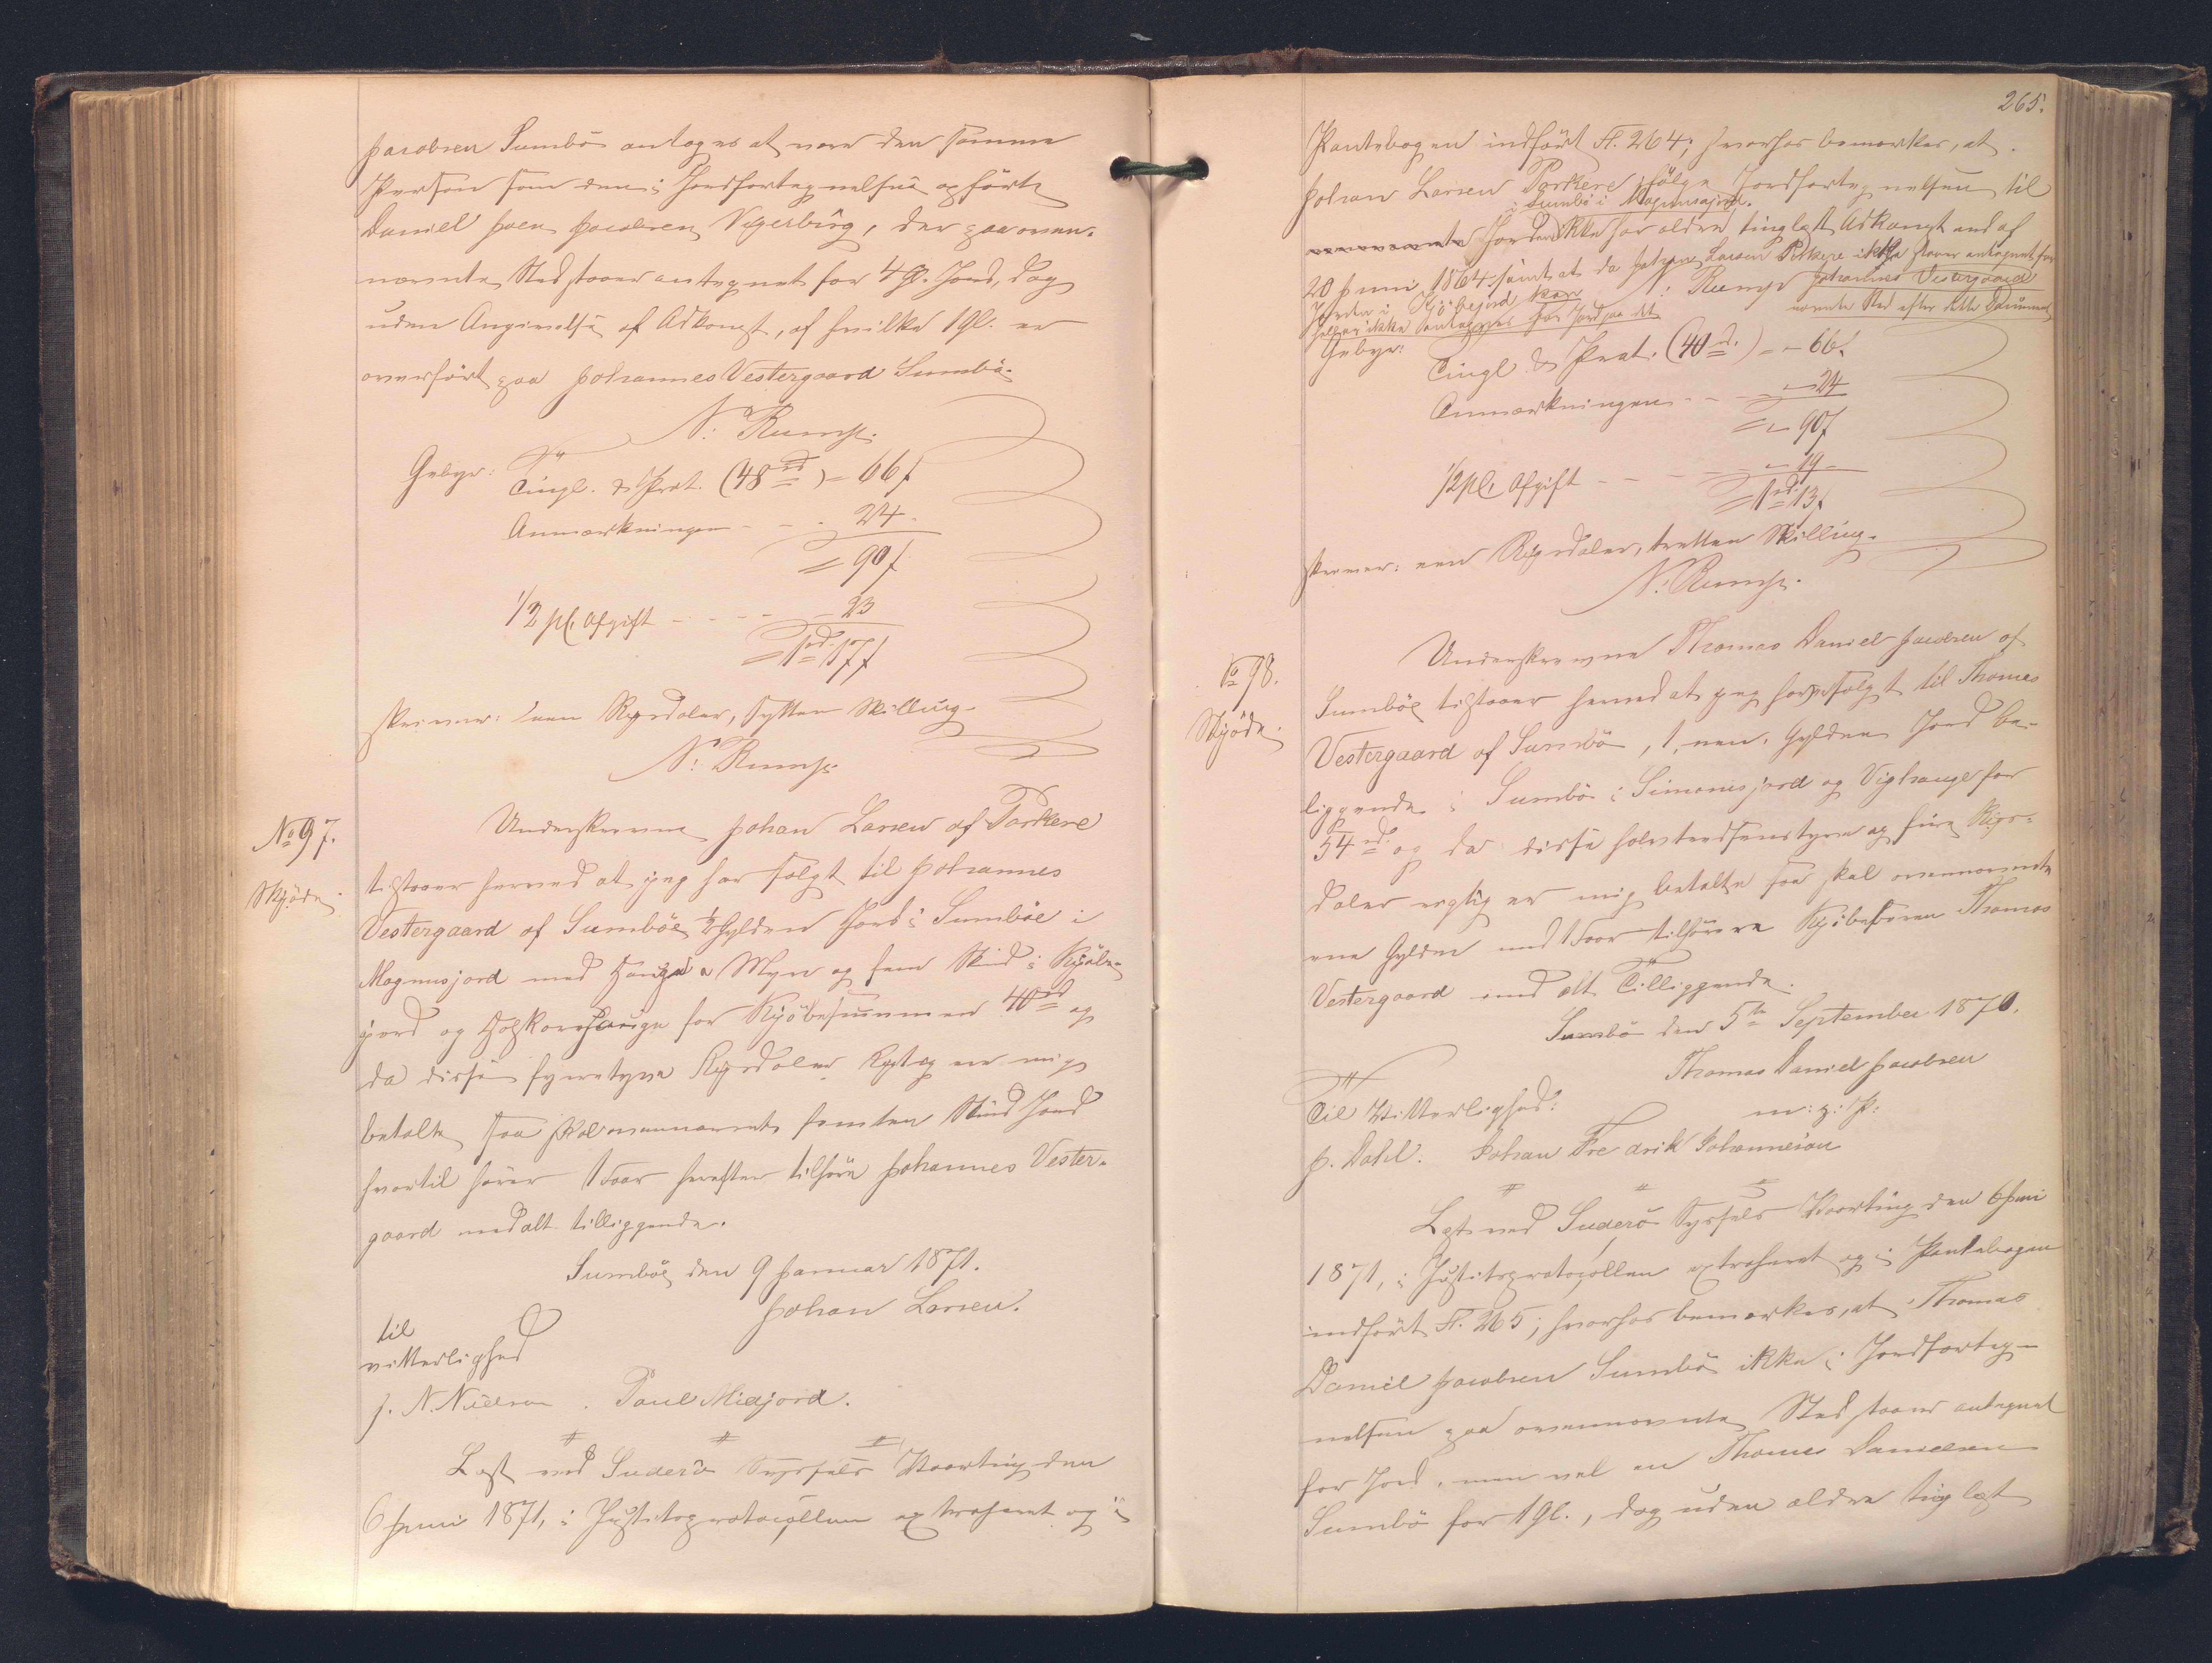 Jacobsen Sumbö antages at være den samme
Person som den i Jordfortegnelsen opförte
Daniel Joen Jacobsen Vegerbürg, der paa oven-
nævnte Sted staaer antegnet for 4 Gl. Jord, dog
uden Angivelse af Adkomst, af hvilke 1 Gl. er
overfört paa Johannes Vestergaard Sumbö.
N: Rump.
Gebyr: Tingl. & Prot. (48 rd) = 66 ſ
Anmærkningen - - - 24
= 90 ſ
1/2 pC. Afgift - - - - 23
= 1 rd. 17 ſ
skriver: een Rigsdaler, sytten Skilling.
N: Rump.
No 97.
Skjöde.
Underskrevne Johan Larsen af Porkere
tilstaaer herved at jeg har solgt til Johannes
Vestergaard af Sumböe ½ Gylden Jord i Sumböe i
Magnusjord med Myre og fem Skind i Kjöbe-
jord og for Kjöbesummen 40 rd og
da disse fyrretyve Rigsdaler rigtig er mig
betalte saa skal ovennævnte femten Skind Jord
hvortil hörer 1 Faar herefter tilhöre Johannes Vester-
gaard med alt tilliggende.
Sumböe den 9 Januar 1871.
Johan Larsen.
til
vitterlighed
J. N. Nielsen. Poul Midjord.
Læst ved Suderö Syssels Vaarting den
6 Juni 1871, i Justitsprotocollen extraheret og i
265.
Pantebogen indfört Fl. 264; hvorhos bemærkes, at
Johan Larsen Porkere ifölge Jordfortegnelsen til
i Sumbö i Magnusjord.
ovennævnte Jord ikke har ældre tinglæst Adkomst end af
20 Juni 1864 samt at da Johan Larsen Porkere ikke staaer antegnet for
Jorden i Kjöbejord kan N: Rump Johannes Vestergaard
heller ikke antegnes for Jord paa det nævnte Sted efter dette Document,
Gebyr:
Tingl. & Prot. (40 rd.) = - 66 ſ
Anmærkningen - - - 24
= - 90 ſ
1/2 pC. Afgift - - - - - 19 -
= 1 rd. 13 ſ
skriver: een Rigsdaler, tretten Skilling.
N: Rump.
No 98.
Skjöde.
Underskrevne Thomas Daniel Jacobsen af
Sumböe tilstaaer herved at jeg har solgt til Thomas
Vestergaard af Sumbö, 1, een, Gylden Jord be-
liggende i Sumbö i Simonsjord og Vighauge for
54 rd. og da disse halvtredsenstyve og fire Rigs-
daler rigtig er mig betalte saa skal ovennævnte
ene Gylden med 1 Faar tilhöre Kjöberen Thomas
Vestergaard med alt Tilliggende.
Sumbö den 5te September 1870.
Thomas Daniel Jacobsen
m: p: P:
Til Vitterlighed:
J. Dahl. Johan Fredrik Johannesen
Læst ved Suderö Syssels Vaarting den 6 Juni
1871, i Justitsprotocollen extraheret og i Pantebogen
indfört Fl. 265; hvorhos bemærkes, at Thomas
Daniel Jacobsen Sumbö ikke i Jordforteg-
nelsen paa ovennævnte Sted staaer antegnet
for Jord, men vel en Thomas Danielsen
Sumbö for 1 Gl., dog uden ældre tinglæst